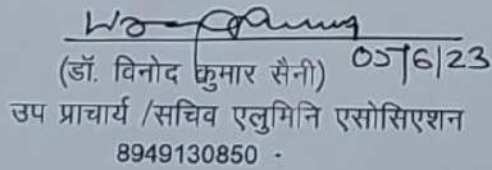 05/6/23
(डॉ. विनोद कुमार सैनी)
उप प्राचार्य /सचिव एलुमिनि एसोसिएशन
8949130850 -